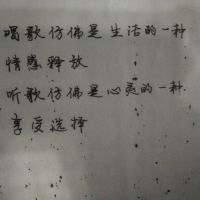 唱歌仿佛是生活的一种
情感释放
听歌仿佛是心灵的一种
享受选择